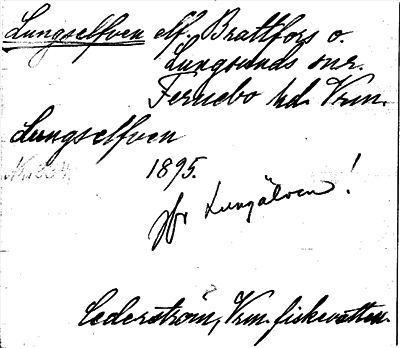 Lungselfven elf. Brattfors o.
Lungsunds snr.
Fernebo hd. Vrm.
Lungselfven
1895.
jfr Lungälven!
Cederström, Vrm. fiskevatten.